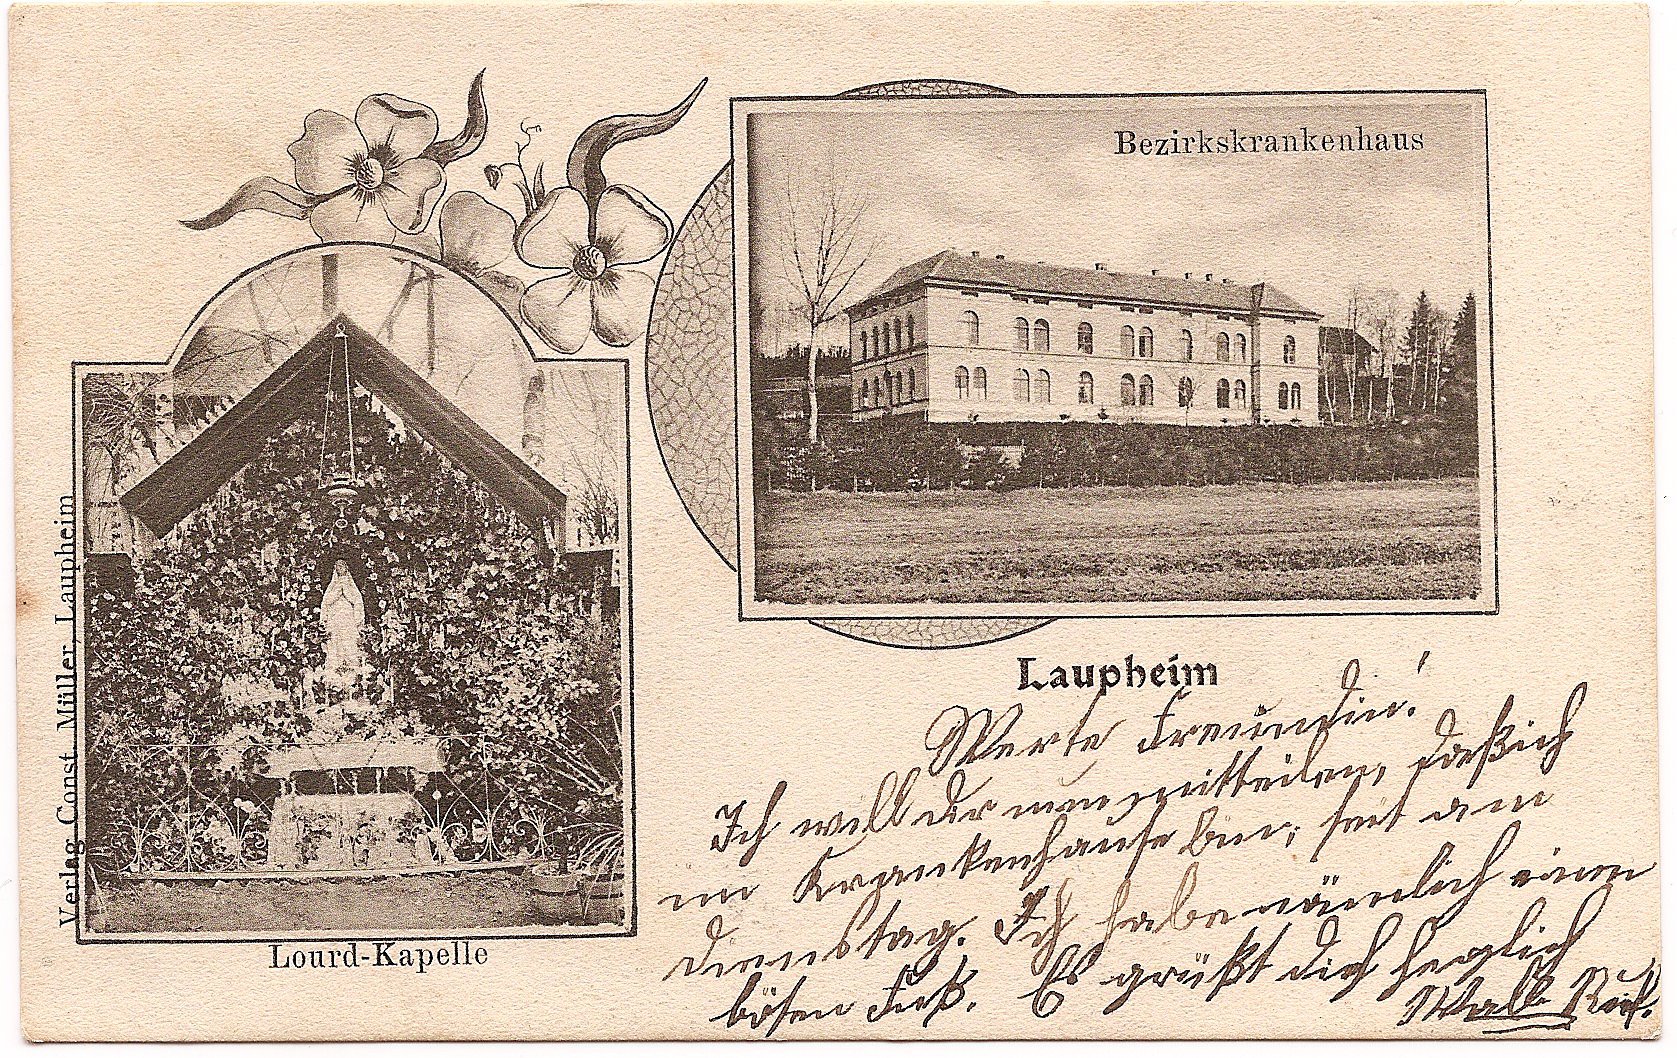 Bezirkskrankenhaus
Laupheim
Lourd-Kapelle
Verlag Const. Müller, Laupheim
Werte Freundin!
Ich will dir nun mitteilen, daß ich
im Krankenhause bin, seit am
Dienstag. Ich habe nämlich einen
bösen Fuß. Es grüßt dich herzlich
Walb.